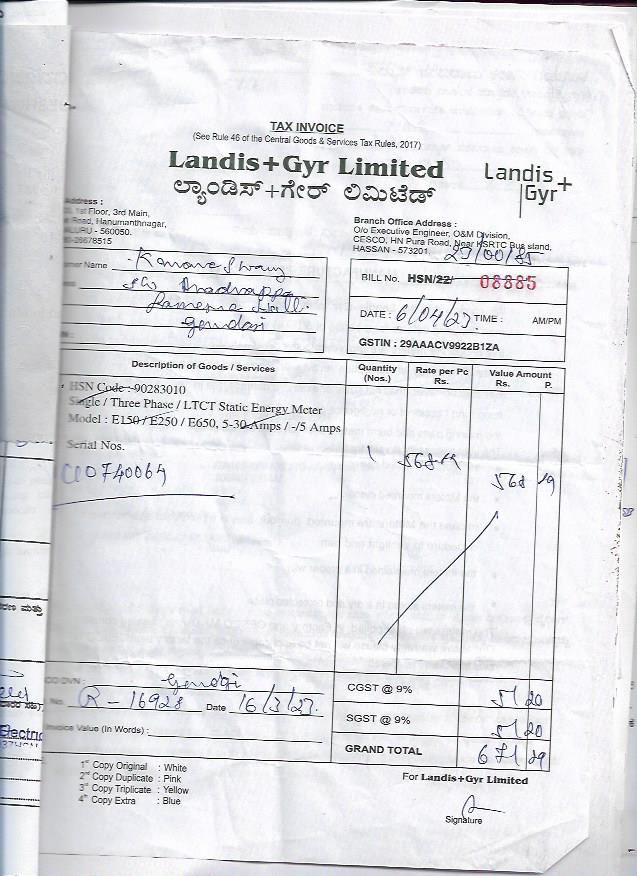 TAX INVOICE
(See Rule 46 of the Central Goods & Services Tax Rules, 2017)
Landis+Gyr Limited
ಲ್ಯಾಂಡಿಸ್+ಗೇರ್ ಲಿಮಿಟೆಡ್
Landis+
Gyr
Address :
1st Floor, 3rd Main,
Road, Hanumanthnagar,
560050.
26678515
Branch Office Address :
O/o Executive Engineer, O&M Division,
CESCO, HN Pura Road, Near KSRTC Bus stand,
HASSAN - 573201.
Name
BILL No. HSN/22/ 08885
DATE : 6/04/23 TIME : AM/PM
GSTIN : 29AAACV9922B1ZA
Description of Goods / Services
Quantity (Nos.)
Rate per Pc Rs.
Value Amount Rs. P.
HSN Code :-90283010
Single / Three Phase / LTCT Static Energy Meter
Model : E150 / E250 / E650, 5-30 Amps / -/5 Amps
Serial Nos.
1 568-19 568 19
No. R-16928 Date 16/3/23.
Invoice Value (In Words) :
CGST @ 9% 51 20
SGST @ 9% 51 20
GRAND TOTAL
1st Copy Original : White
2nd Copy Duplicate : Pink
3rd Copy Triplicate : Yellow
4th Copy Extra : Blue
For Landis+Gyr Limited
Signature
ಮತ್ತು
Electric